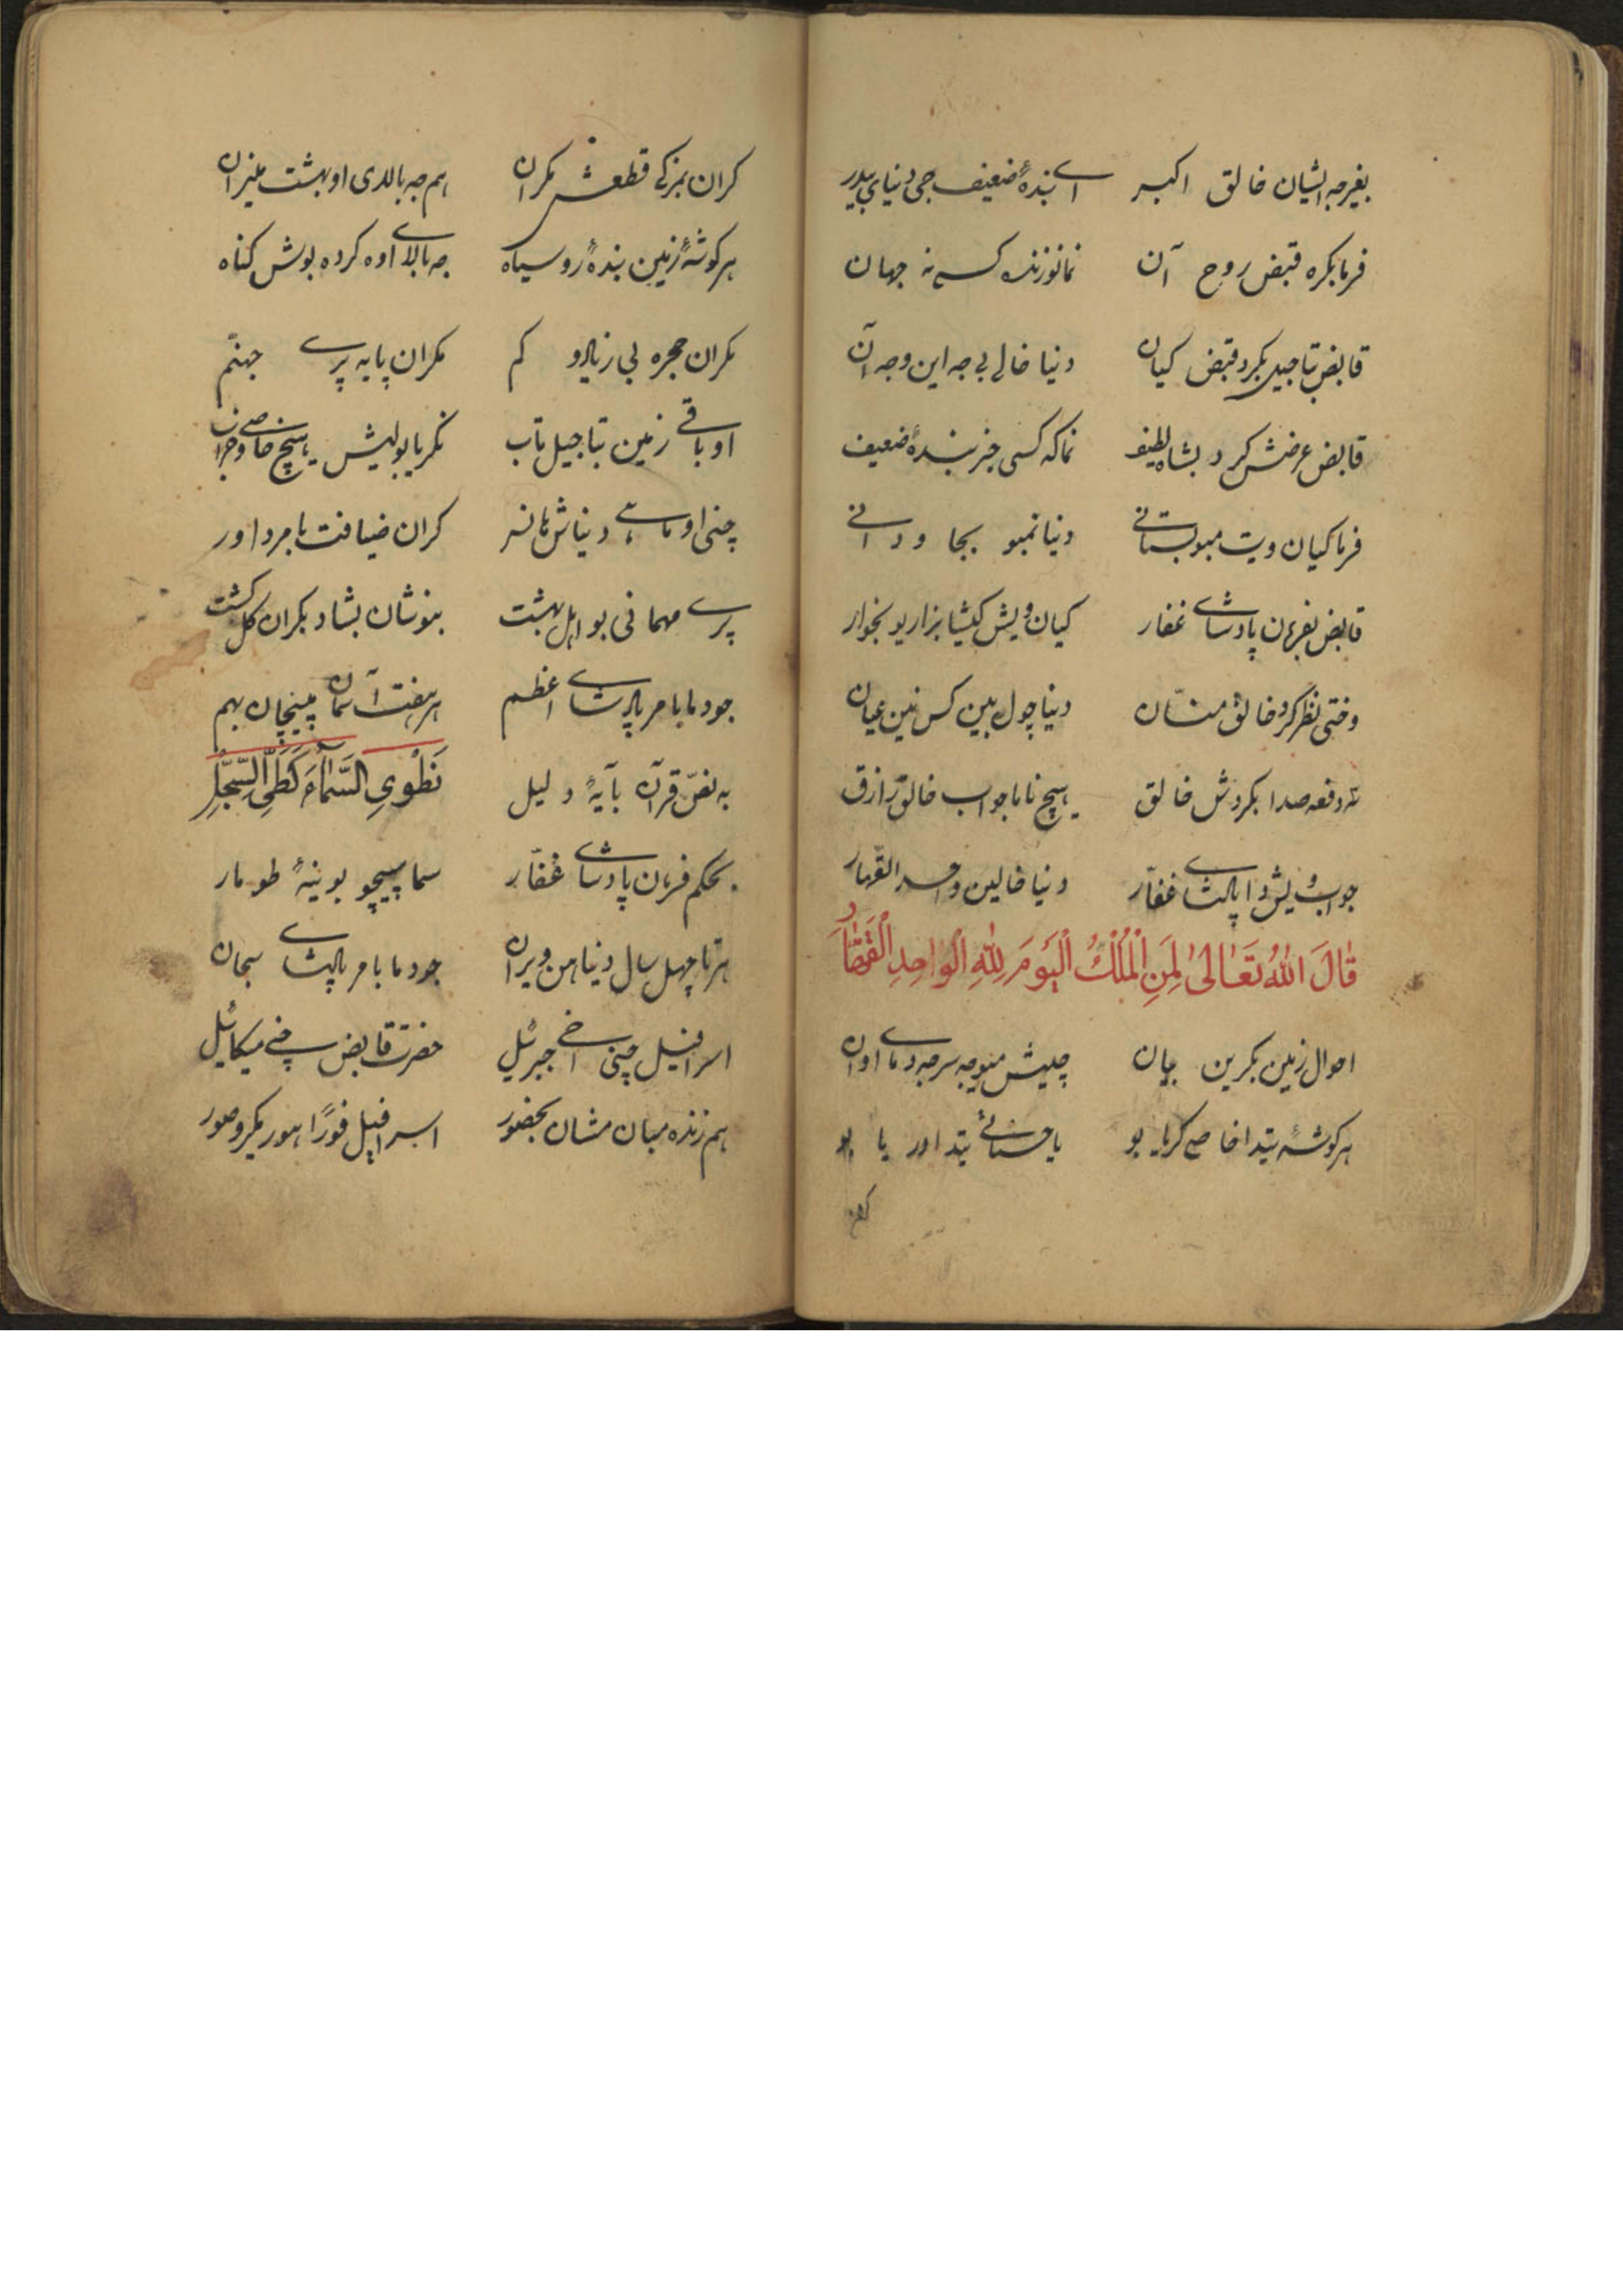 بغیر جه ایشان خالق اکبر اے بندهٔ ضعیف جی دنیای بیدر
فرما بکره قبض روح آن نمانو زنده کسے نه جهان
قابض بتاجیل بکرد قبض کیان دنیا خالی بی جه این و جه آن
قابض عرضش کرد بشاه لطیف نماکه کسی جز بندهٔ ضعیف
فرما کیان ویت مبو بستانے دنیا نمبو بجا ودانے
قابض بفرمان پادشاے غفار کیان ویش کیشا بزاریو بخوار
وختی نظر کرد خالق منّان دنیا چول بین کس نین عیان
سه دفعه صدا بکردش خالق هیچ ناما جواب خالق رازق
جواب ویش دا پادشاے غفّار دنیا خالین واحد القهار
قَالَ اللهُ تَعَالىٰ لِمَنِ الْمُلْكُ الْيَوْمَ لِلّٰهِ الْوَاحِدِ الْقَهَّارِ
احوال زمین بکرین بیان چلیش میوجه سر جه دماے اوان
هر کوشهٔ بتدا خاصے کریا بو یا حسنائے بتدا ور یا بو
کران
کران بمزکے قطعش مکران هم جه بالدی او بهشت میزان
هر کوشهٔ زمین بندهٔ رو سیاه جه بالاے اوه کرده بوش کناه
مکران حجره بی زیاد و کم مکران پایه پرے جهنّم
او باقے زمین بتاجیل تاب نکریا بولیش هیچ خاصے و خراب
چنی او ماهے دنیاش نانسر کران ضیافت بامر داور
پرے مهمانی بو اهل بهشت بنوشان بشاد بکران کل کشت
جو دما بامر پادشاے اعظم هر هفت آسمان پیچان بهم
به نصّ قرآن بآیهٔ دلیل نَطْوِي السَّمَاءَ كَطَيِّ السِّجِلِّ
بحکم فرمان پادشاے غفّار سما پیچو بوینهٔ طومار
هر تا چهل سال دنیا هن ویران جو دما بامر پادشاے سبحان
اسرافیل چنی اخے جبرئیل حضرت قابض چنے میکائیل
هم زنده مبان مشان بحضور اسرافیل فورًا هور بکرو صور